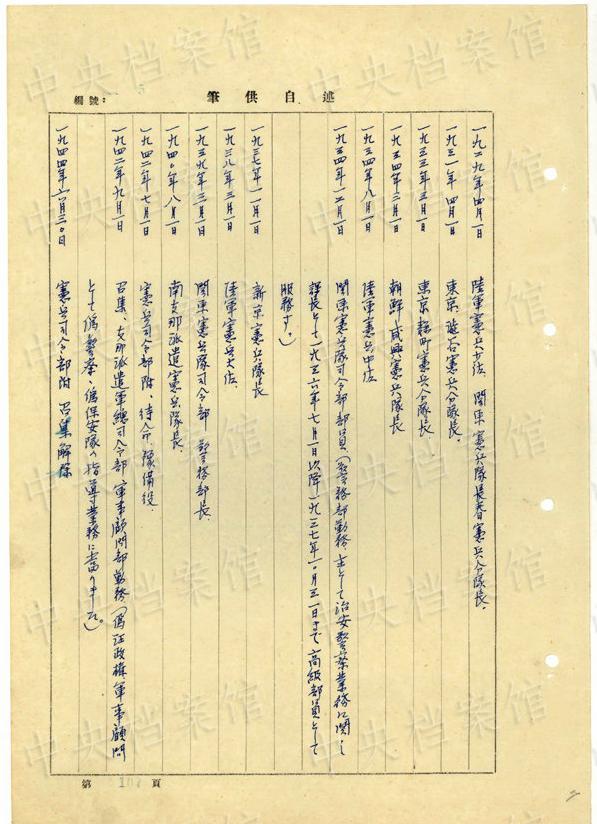 筆供自述
編號：
一九二九年四月一日　陸軍憲兵少佐　関東憲兵隊長春憲兵分隊長、
一九三一年四月一日　東京渋谷憲兵分隊長、
一九三三年三月一日　東京麹町憲兵分隊長、
一九三四年三月一日　朝鮮咸興憲兵隊長
一九三四年八月一日　陸軍憲兵中佐
一九三四年一二月一日　関東憲兵隊司令部部員（警務部勤務、主として治安警察業務に関し
課長として一九三六年七月一日以降一九三七年一〇月三一日まで高級部員として
服務す。）
一九三七年一一月一日　新京憲兵隊長
一九三八年三月一日　陸軍憲兵大佐、
一九三九年三月一日　関東憲兵隊司令部　警務部長、
一九四〇年八月一日　南支那派遣憲兵隊長、
一九四二年七月一日　憲兵司令部附、待命、豫備役、
一九四二年九月一日　召集、支那派遣軍総司令部　軍事顧問部勤務（偽汪政権軍事顧問
として偽警察、偽保安隊の指導業務に當りました）。
一九四四年六月三〇日　憲兵司令部附　召集解除
第 107 頁
中央档案馆